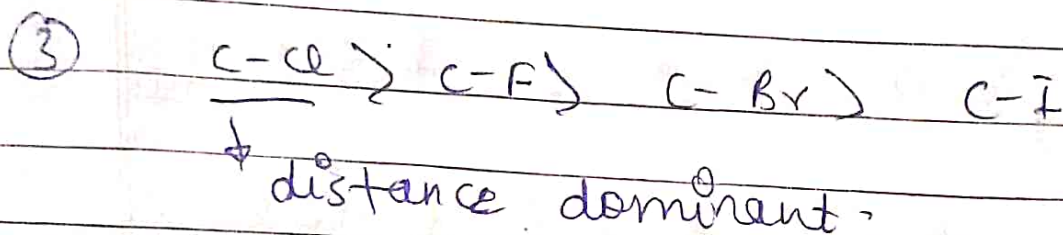 ③ C-Cl > C-F > C-Br > C-I
↓ distance dominant.